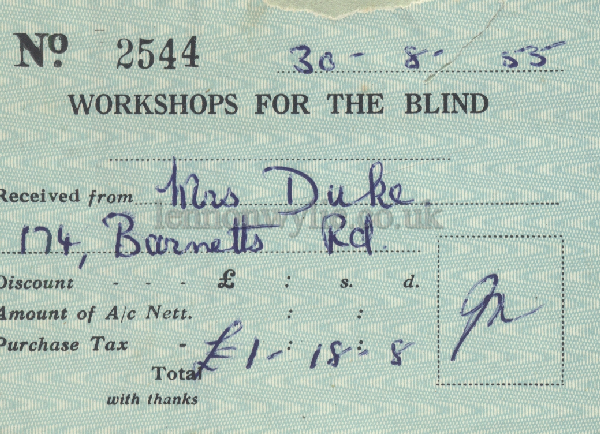 No. 2544 30 - 8 - 55
WORKSHOPS FOR THE BLIND
Received from Mrs Duke
lennonwylie.co.uk
174, Barnetts Rd.
Discount - - - £ : s. d.
Amount of A/c Nett. : :
Purchase Tax - : :
Total £1 - 18 - 8
with thanks